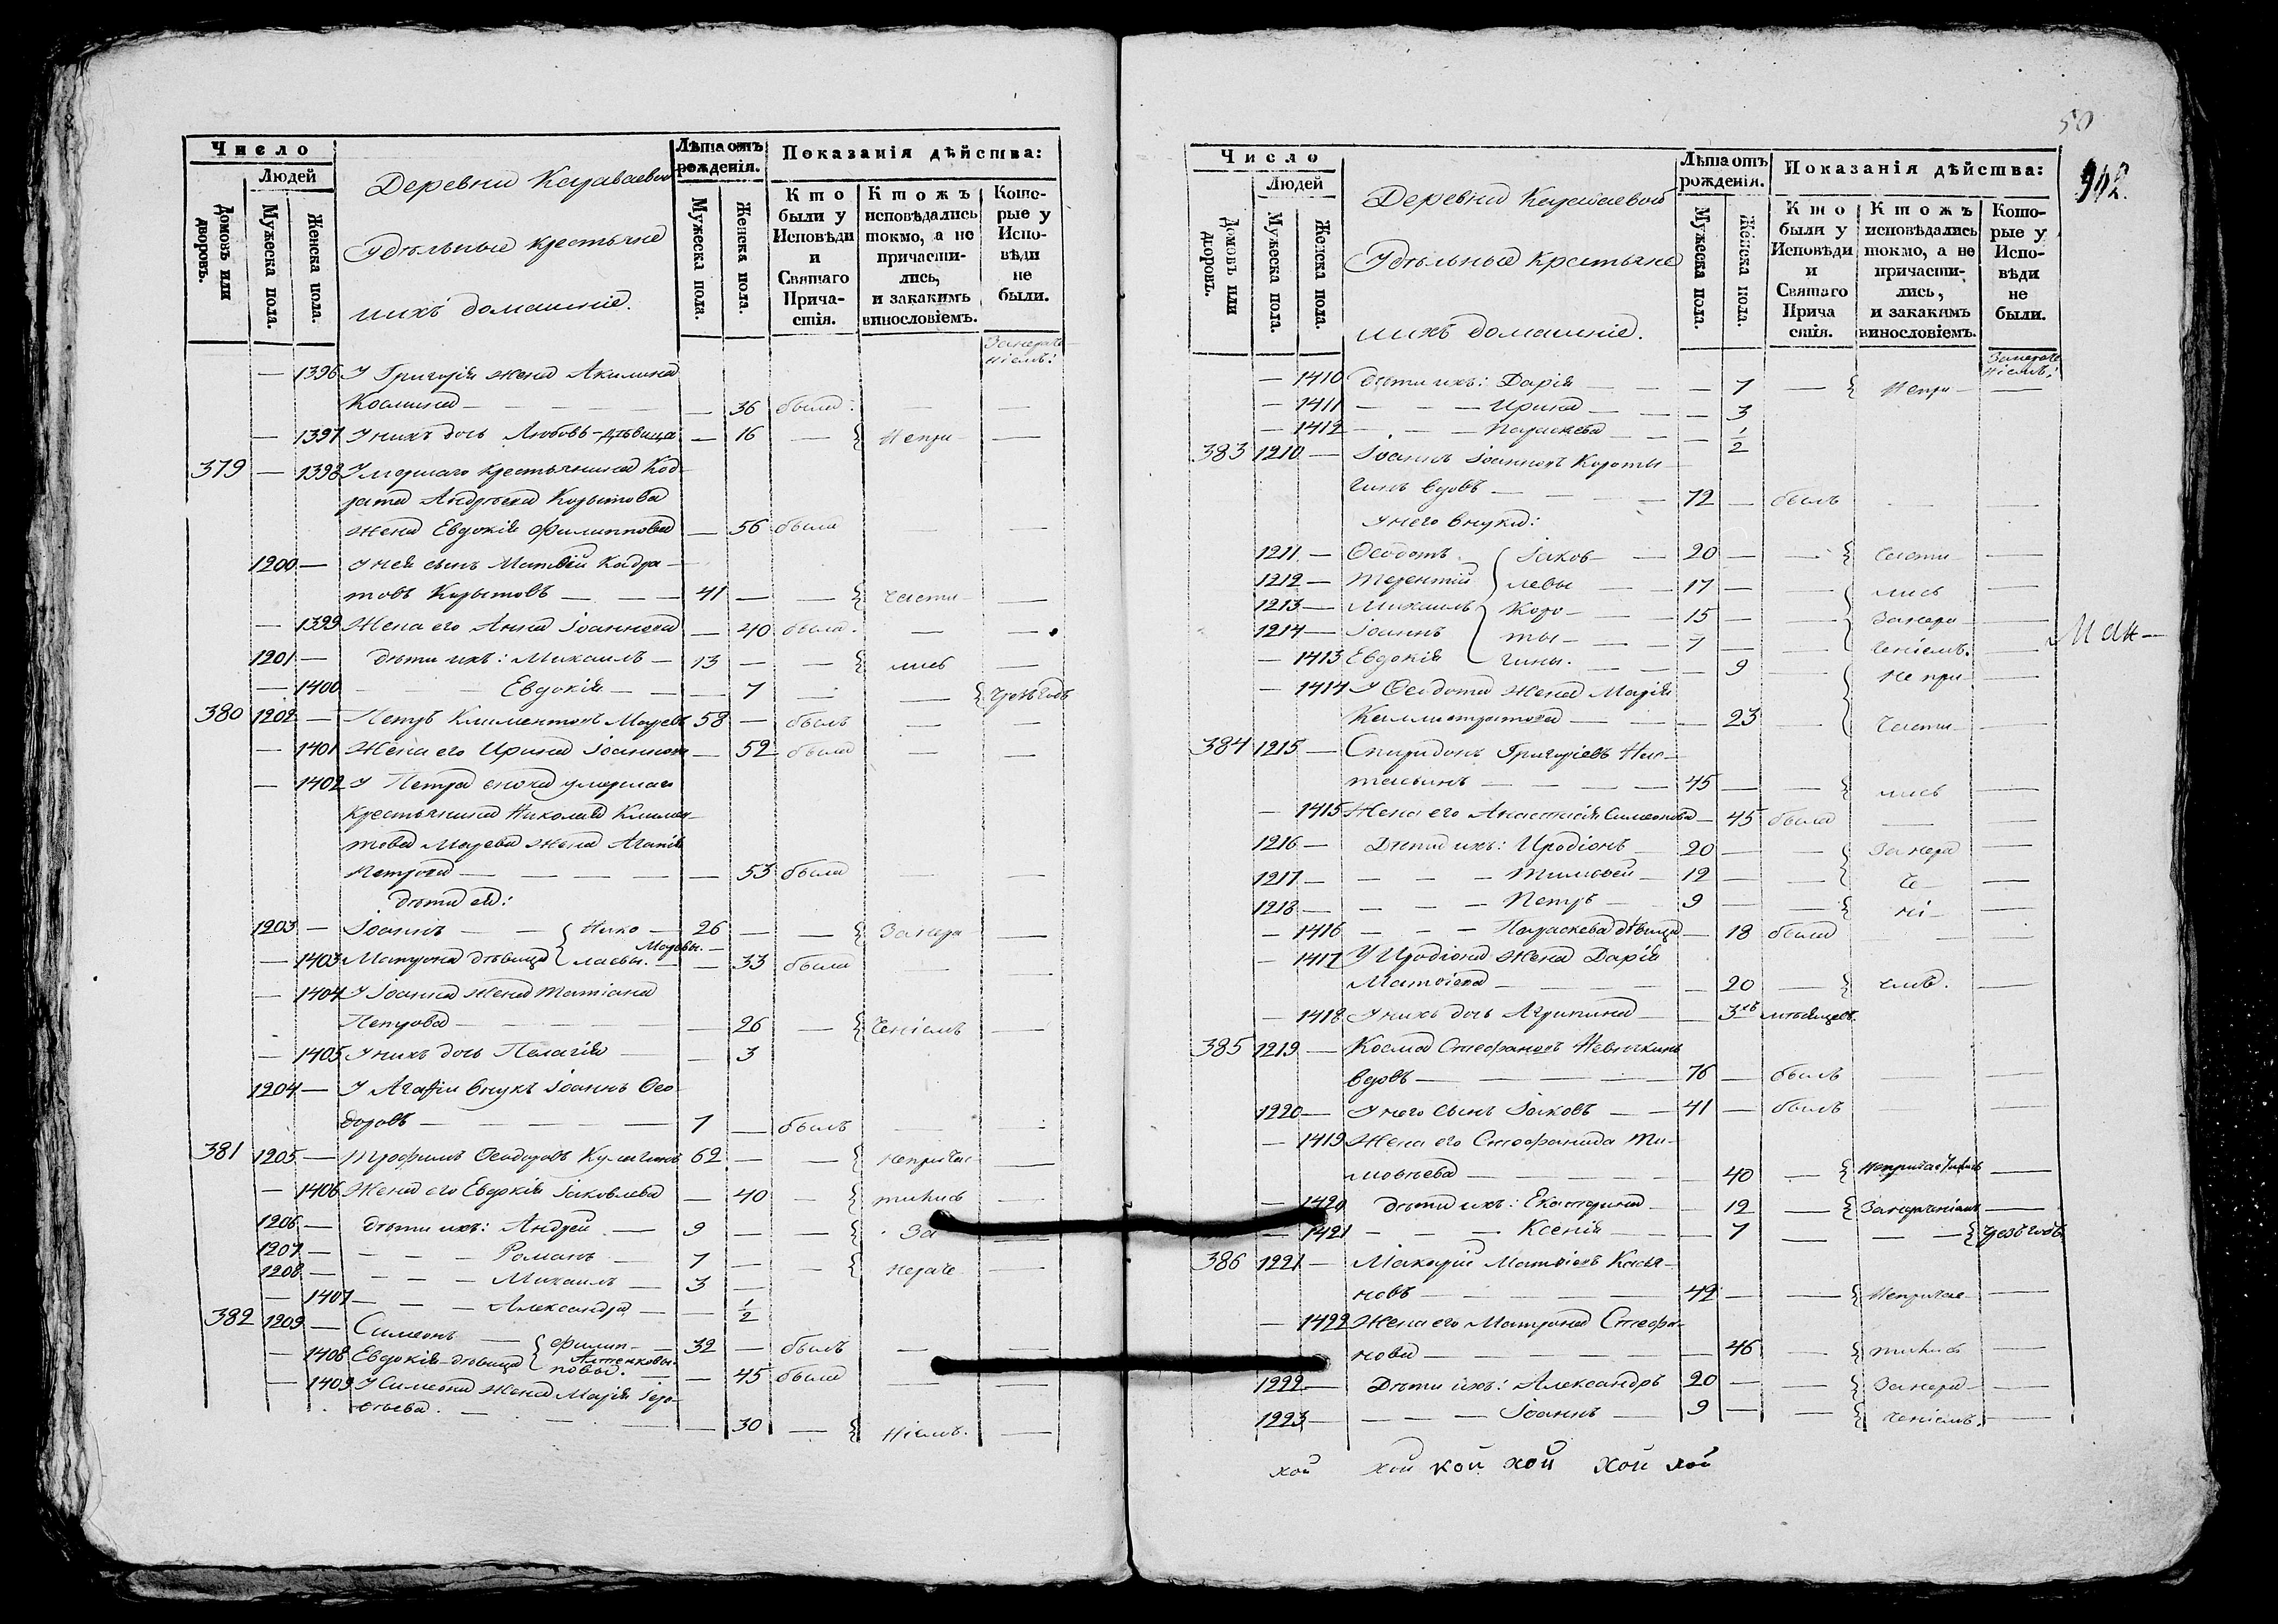 Число
Людей
Домовъ или дворовъ.
Мужеска пола.
Женска пола.
Деревни Караваевой
Удѣльные крестьяне
иихъ домашніе.
Лѣта отъ рожденія.
Мужеска пола.
Женска пола.
Показанія дѣйства:
Кто были у Исповѣди и Святаго Причастія.
Ктожъ исповѣдались токмо, а не причастились, и закакимъ винословіемъ.
Которые у Исповѣди не были.
— 1396 У Григорія жена Акилина
Космина — — 36 была — —
— 1397 У нихъ дочь Любовь-дѣвица — 16 — { Непри —
379 — 1398 Умершаго крестьянина Код
рата Андреева Корытова
жена Евдокія Филиппова — 56 была — —
1200 — У нея сынъ Матвѣй Кодра
товъ Корытовъ — 41 — — { части —
— 1399 Жена его Анна Іоаннова — 40 была — —
1201 — дѣти ихъ: Михаилъ — 13 — — { лись —
— 1400 — — Евдокія — — 7 — —
380 1202 — Петръ Климентовъ 58 — былъ — —
— 1401 Жена его Ирина Іоаннова — 52 была — —
— 1402 У Петра сноха умершаго
крестьянина Николая Климен
това Марева жена Агафія
Петрова — — 53 была — —
дѣти ея:
1203 — Іоаннъ — { Нико 26 — — { Занера —
— 1403 Матрона дѣвица { лаевы. Маревы. — 33 была — —
— 1404 У Іоанна жена Татіана
Петрова — — 26 — { ченіемъ —
— 1405 У нихъ дочь Пелагія — — 3
1204 — У Агафіи внукъ Іоаннъ Ѳео
доровъ — 7 — былъ — —
381 1205 — Трофимъ Ѳеодоровъ Кулагинъ 62 — — { Непричас —
— 1406 Жена его Евдокія Іаковлева — 40 — { тились —
1206 — дѣти ихъ: Андрей — 9 — — { За —
1207 — — — Романъ — 7 — — { нераче —
1208 — — — Михаилъ — 3 —
— 1407 — — Александра — — 1/2
382 1209 — Симеонъ — { Филип 32 — былъ — —
— 1408 Евдокія-дѣвица { повы. — 45 была — —
— 1409 У Симеона жена Марія
— 30 — { ніемъ. —
50
Число
Людей
Домовъ или дворовъ.
Мужеска пола.
Женска пола.
Деревни Караваевой
Удѣльные крестьяне
иихъ домашніе.
Лѣта отъ рожденія.
Мужеска пола.
Женска пола.
Показанія дѣйства:
Кто были у Исповѣди и Святаго Прича стія.
Ктожъ исповѣдались токмо, а не причастились, и закакимъ винословіемъ.
Которые у Исповѣди не были.
— 1410 дѣти ихъ: Дарія — — 7 — { Непри —
— 1411 — — Ирина — — 3
— 1412 — — Параскева — — 1/2
383 1210 — Іоаннъ Іоанновъ Короты
гинъ вдовъ — 72 — былъ — —
У него внуки:
1211 — Ѳеодотъ { Іаков — 20 — — { части —
1212 — Терентій { левы — 17 — — лись —
1213 — Михаилъ Коро — 15 — — { Занера —
1214 — Іоаннъ ты — 7 — — ченіемъ. —
— 1413 Евдокія гины. — 9 — { Не при —
— 1414 У Ѳеодота жена Марія
Каллистратова — — 23 — части —
384 1215 — Спиридонъ Григоріевъ
45 — — { лись —
— 1415 Жена его Анастасія Симеонова — 45 была — —
1216 — Дѣти ихъ: Иродіонъ 20 — — { Занера —
1217 — — — Тимоѳей — 12 — — { че —
1218 — — — Петръ — 9 — — { ні —
— 1416 — — Параскева дѣвица — 18 была — —
— 1417 У Иродіона жена Дарія
Матвіева — — 20 — { емъ. —
— 1418 У нихъ дочь Агрипина — — 3хъ мѣсяцовъ.
385 1219 — Косма Стефановъ
вдовъ — 76 — былъ — —
1220 — У него сынъ Іаковъ — 41 — былъ — —
— 1419 Жена его Стефанида Ти
моѳеева — — 40 — { Непричастилась —
— 1420 дѣти ихъ: Екатерина — — 12 — { Занераченіемъ —
— 1421 — — Ксенія — — 7 — —
386 1221 — Макарій Матвіевъ Касья
новъ — 42 — — { Непричас —
— 1422 Жена его Матрона Стефа
нова — — 46 — { тились —
1222 — Дѣти ихъ: Александръ 20 — — { Занера —
1223 — — — Іоаннъ — 9 — — { ченіемъ. —
кой кой кой кой кой кой